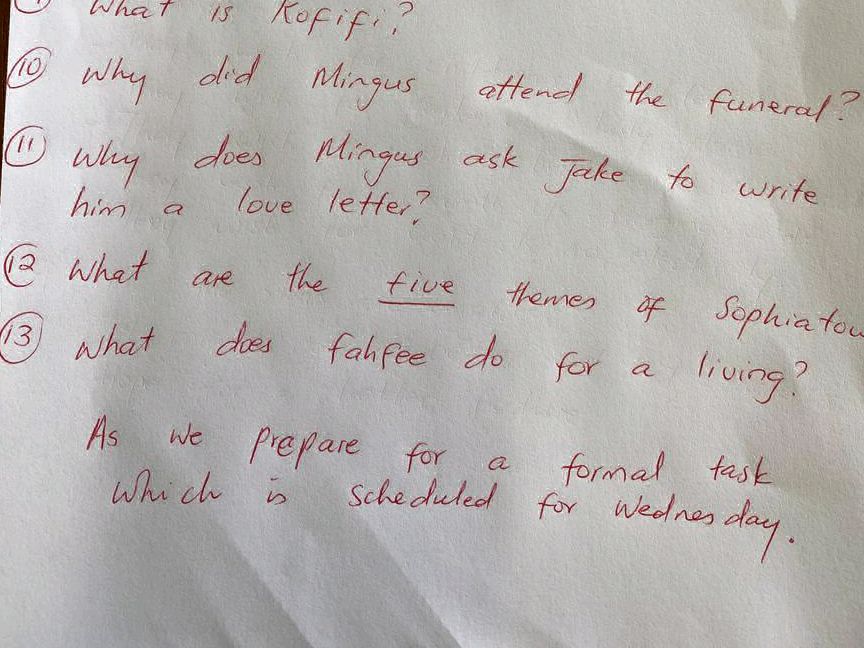 What is Kofifi?
10 Why did Mingus attend the funeral?
11 Why does Mingus ask Jake to write
him a love letter?
12 What are the five themes of Sophiatow
13 What does fahfee do for a living?
As we prepare for a formal task
which is scheduled for Wednesday.